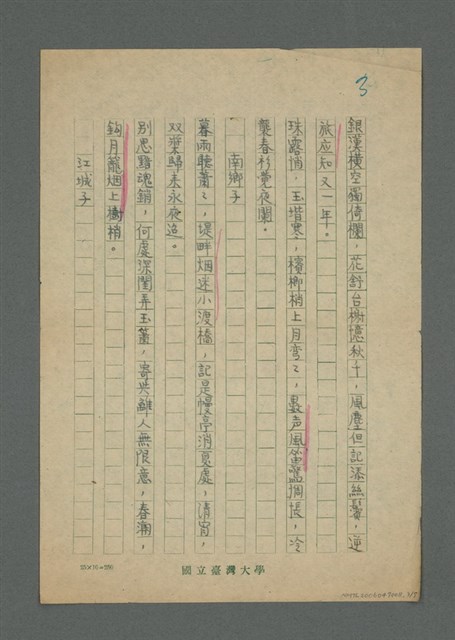 3
銀漢橫空獨倚欄，花舒台榭憶秋千，風塵但記添絲鬢，逆
旅应知又一年。
珠露悄，玉堦寒，檳榔梢上月弯々，數声風笛惹惆悵，冷
襲春衫覺夜闌。
南鄉子
暮雨聽蕭々，堤畔烟迷小渡橋，記是幔亭消夏處，清宵，
双槳歸来永夜迢。
別思黯魂銷，何處深閨弄玉簫，寄與離人無限意，春潮，
鈎月籠烟上樹梢。
江城子
國立臺灣大學